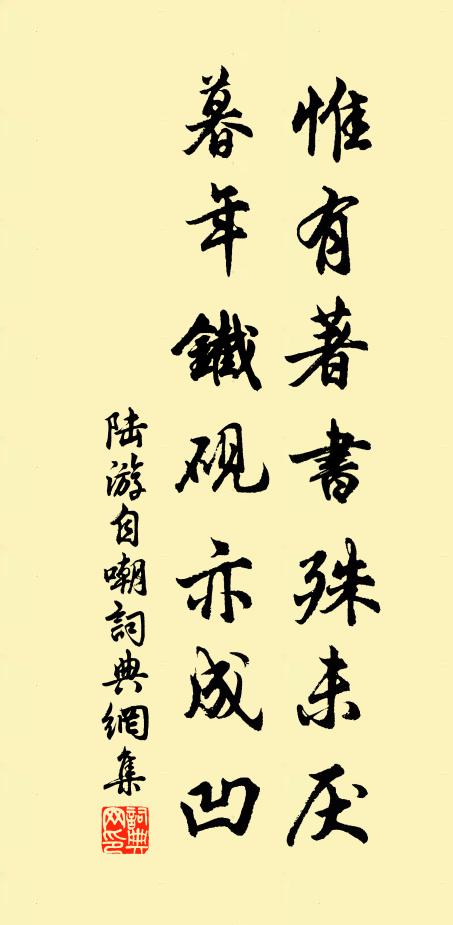 惟有著書殊未厌
暮年鐵硯亦成凹
陆游自嘲詞典網集
詞典
网印